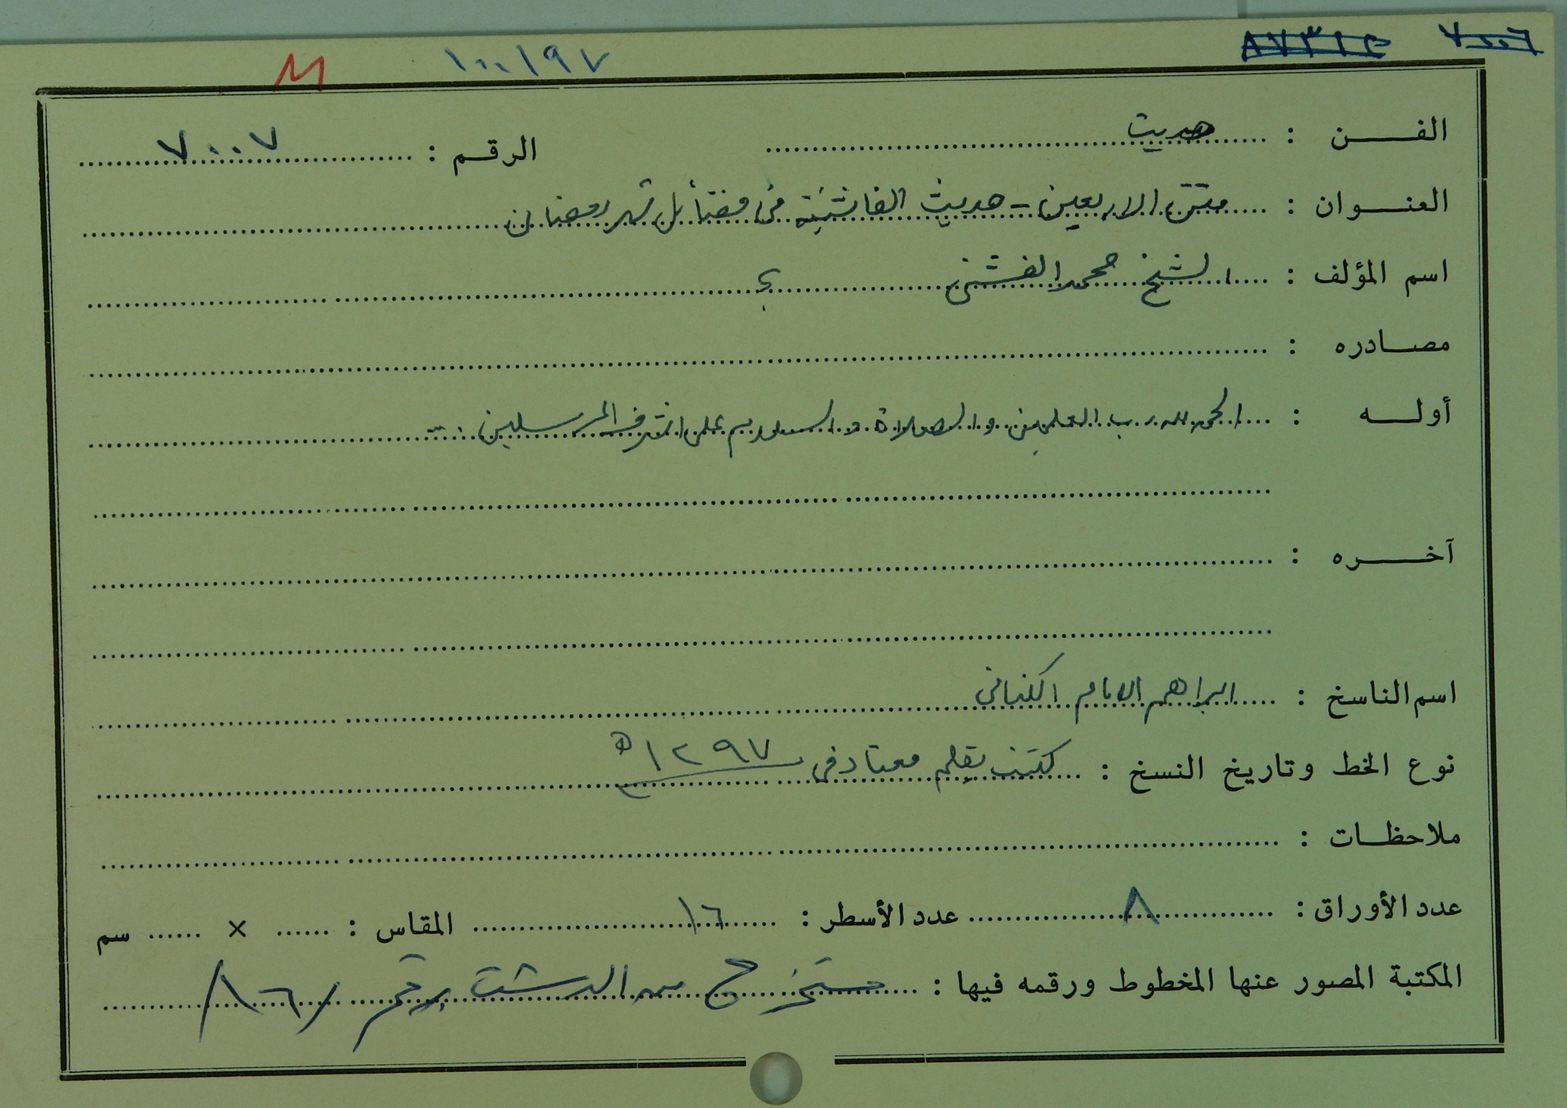 M ١٠٠١٩٧
الفن : حديث الرقم : ٧٠٠٧
العنوان : متن الاربعين - حديث الفاشنية في فضأيل شهر رمضان
اسم المؤلف : الشيخ محمد الفشني ؟
مصادره :
أوله : الحمد لله رب العلمين و الصلاة و السلام على اشرف المرسلين ...
آخره :
اسم الناسخ : ابراهيم الامام الكنباني
نوع الخط وتاريخ النسخ : كتبت بقلم معتاد في ١٢٩٧ ه
ملاحظات :
عدد الأوراق : ٨ عدد الأسطر : ١٦ المقاس : × سم
المكتبة المصور عنها المخطوط ورقمه فيها : مستخرج من الدشت رقم /١٦/